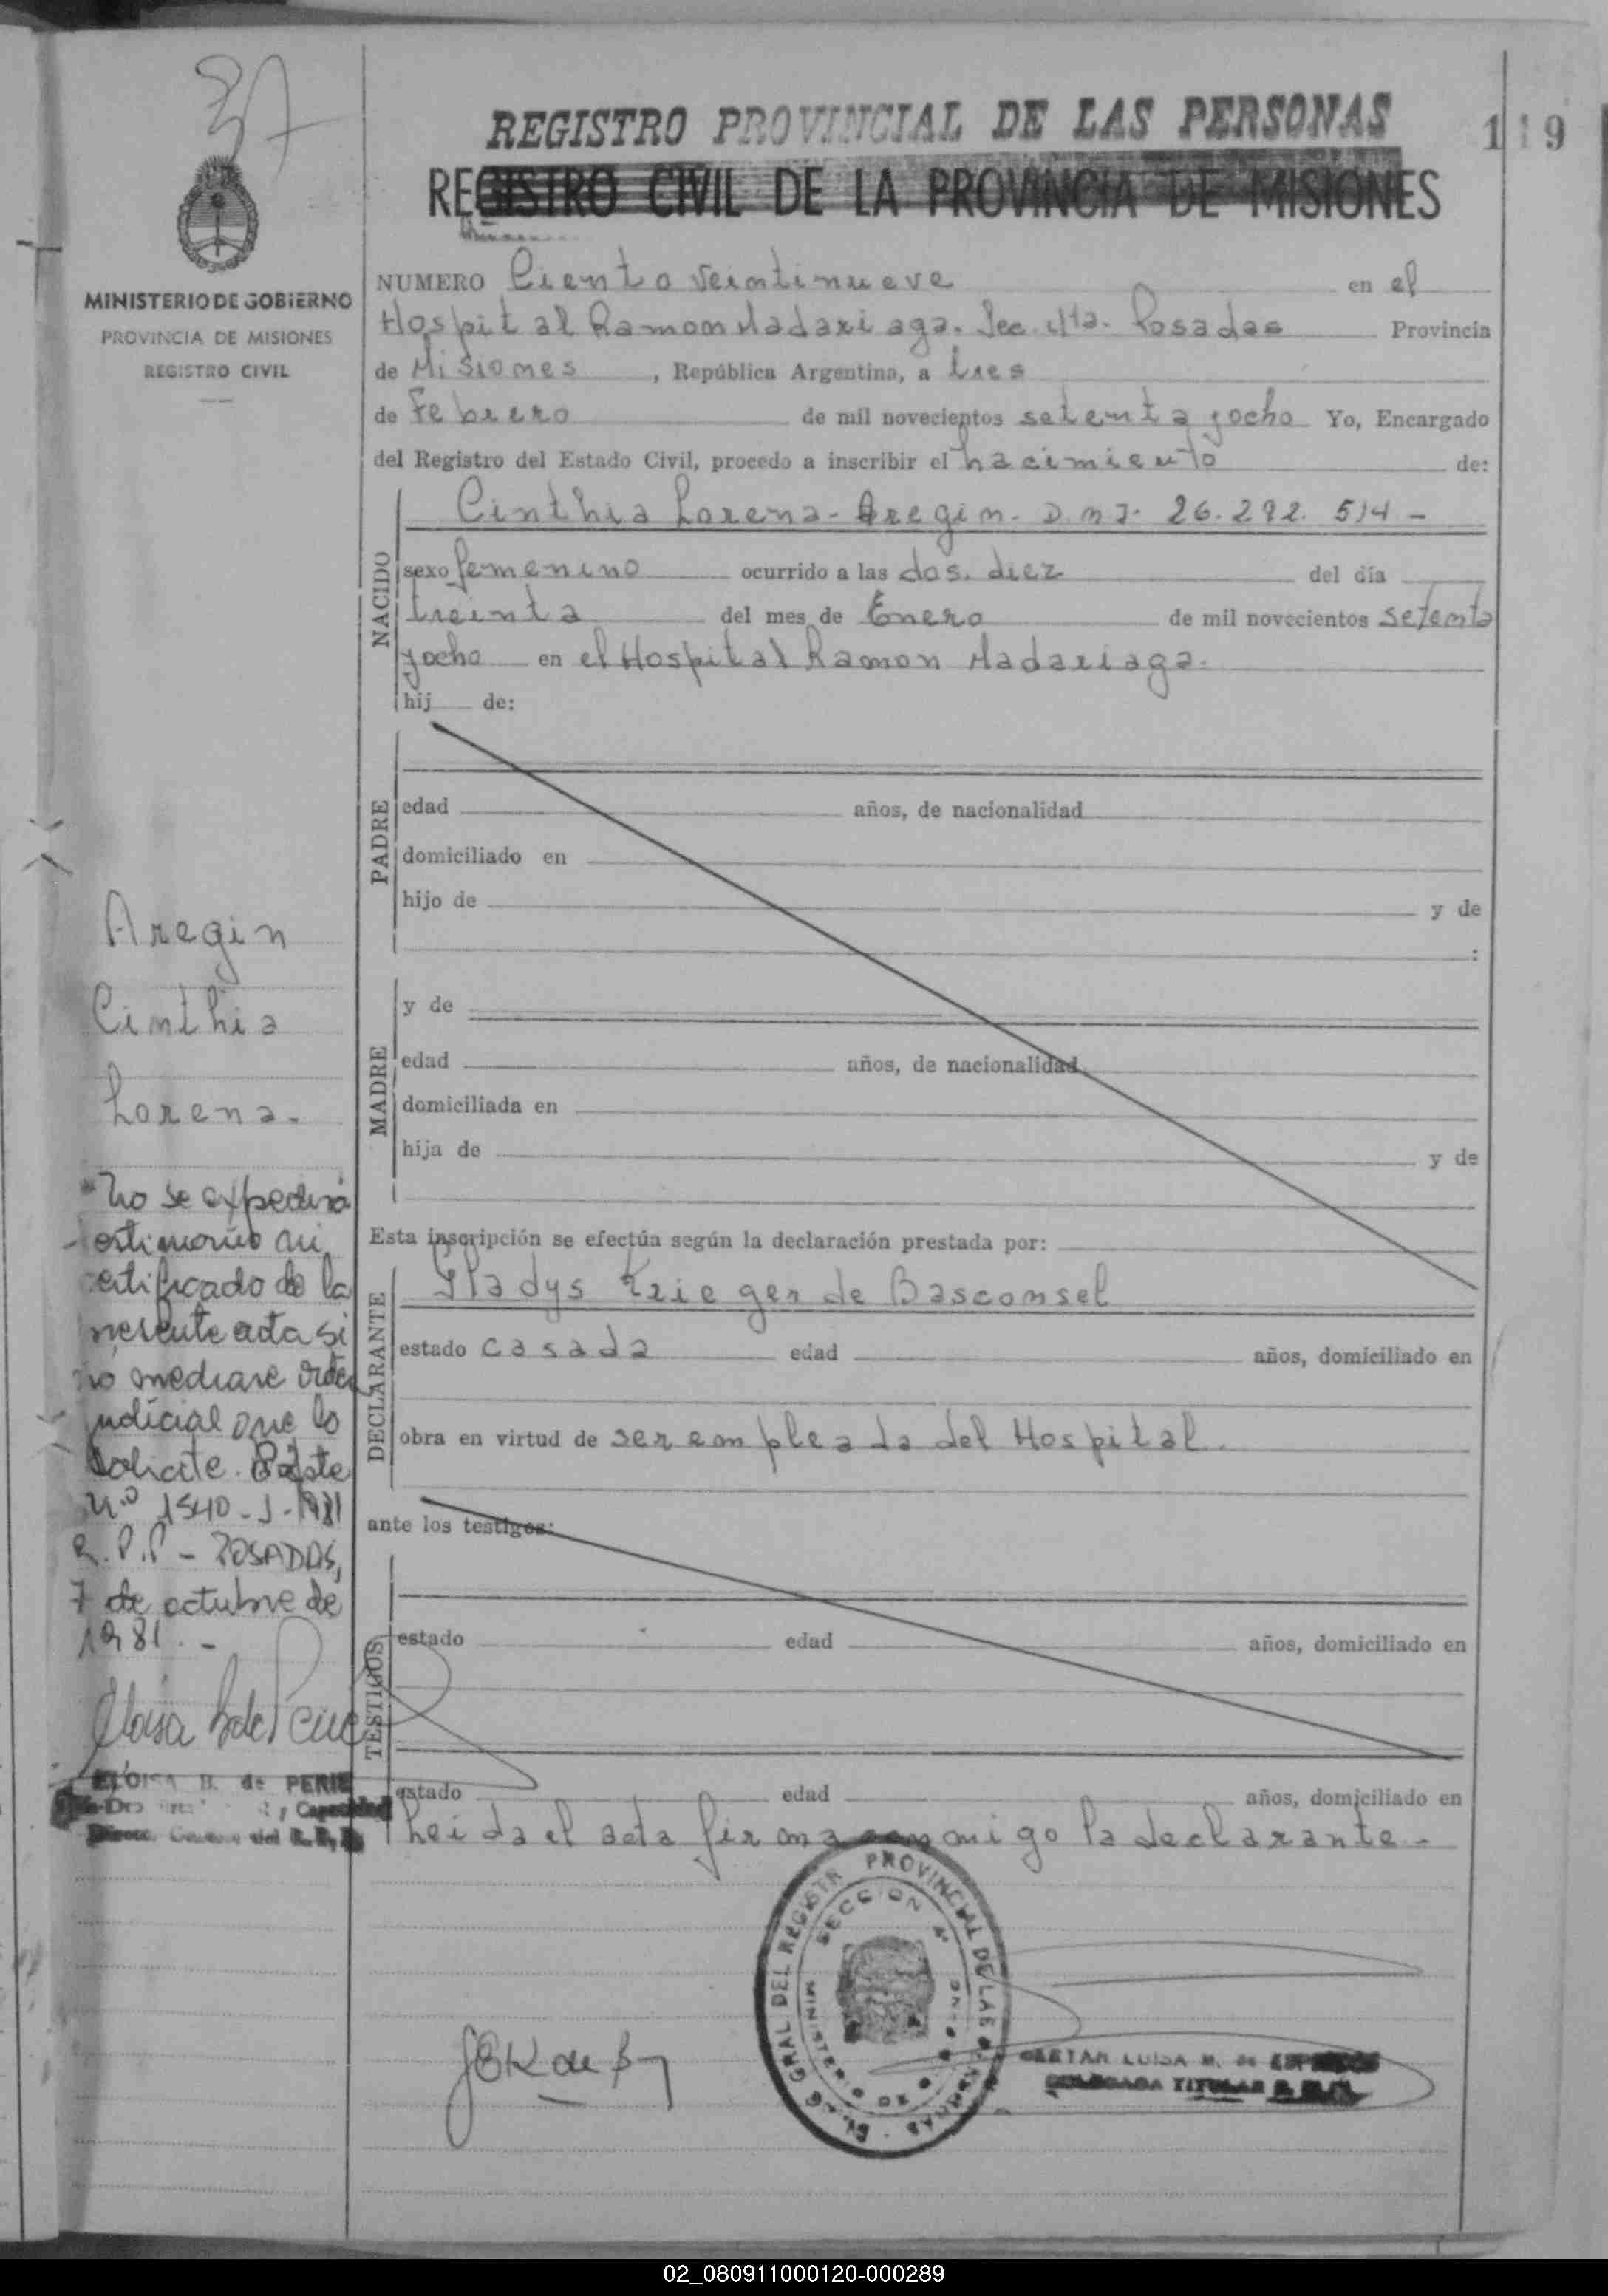 37
REGISTRO PROVINCIAL DE LAS PERSONAS
119
REGISTRO CIVIL DE LA PROVINCIA DE MISIONES
MINISTERIO DE GOBIERNO
PROVINCIA DE MISIONES
REGISTRO CIVIL
NUMERO Ciento veintinueve en el
Hospital Ramon Madariaga. Sec. 4ta. Posadas Provincia
de Misiones , República Argentina, a tres
de Febrero de mil novecientos setenta yocho Yo, Encargado
del Registro del Estado Civil, procedo a inscribir el nacimiento de:
NACIDO
Cinthia Lorena - Aregin. D.N.I. 26.292.514 -
sexo femenino ocurrido a las dos. diez del día
treinta del mes de Enero de mil novecientos setenta
yocho en el Hospital Ramon Madariaga.
hij de:
PADRE
edad años, de nacionalidad
domiciliado en
hijo de y de
:
MADRE
y de
edad años, de nacionalidad
domiciliada en
hija de y de
Esta inscripción se efectúa según la declaración prestada por:
DECLARANTE
Gladys Krieger de Basconsel
estado casada edad años, domiciliado en
obra en virtud de ser empleada del Hospital.
ante los testigos:
TESTIGOS
estado edad años, domiciliado en
estado edad años, domiciliado en
Leida el acta firma conmigo la declarante -
Aregin
Cinthia
Lorena.
No se expedirá
testimonio ni
certificado de la
presente acta si
no mediare orden
judicial que lo
solicite.
Nº 1540-J-1981
R.P.P - POSADAS,
7 de octubre de
1981. -
ELOISA B. de PERIE
y Capacidad
GRAL DEL REGISTR PROVINCIAL DE LAS PERSONAS
SECCION 4ª
LUISA M. de
DELEGADA TITULAR
02_080911000120-000289